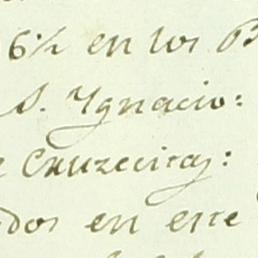 6½ en los B
S. Ygnacio:
e Cruzecitas:
dos en este